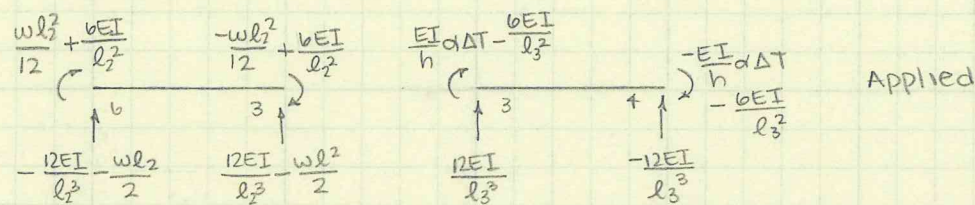 wl₂²/12 + 6EI/l₂²   -wl₂²/12 + 6EI/l₂²   EI/h αΔT - 6EI/l₃²   -EI/h αΔT - 6EI/l₃²   Applied
6   3   3   4
-12EI/l₂³ - wl₂/2   12EI/l₂³ - wl²/2   12EI/l₃³   -12EI/l₃³